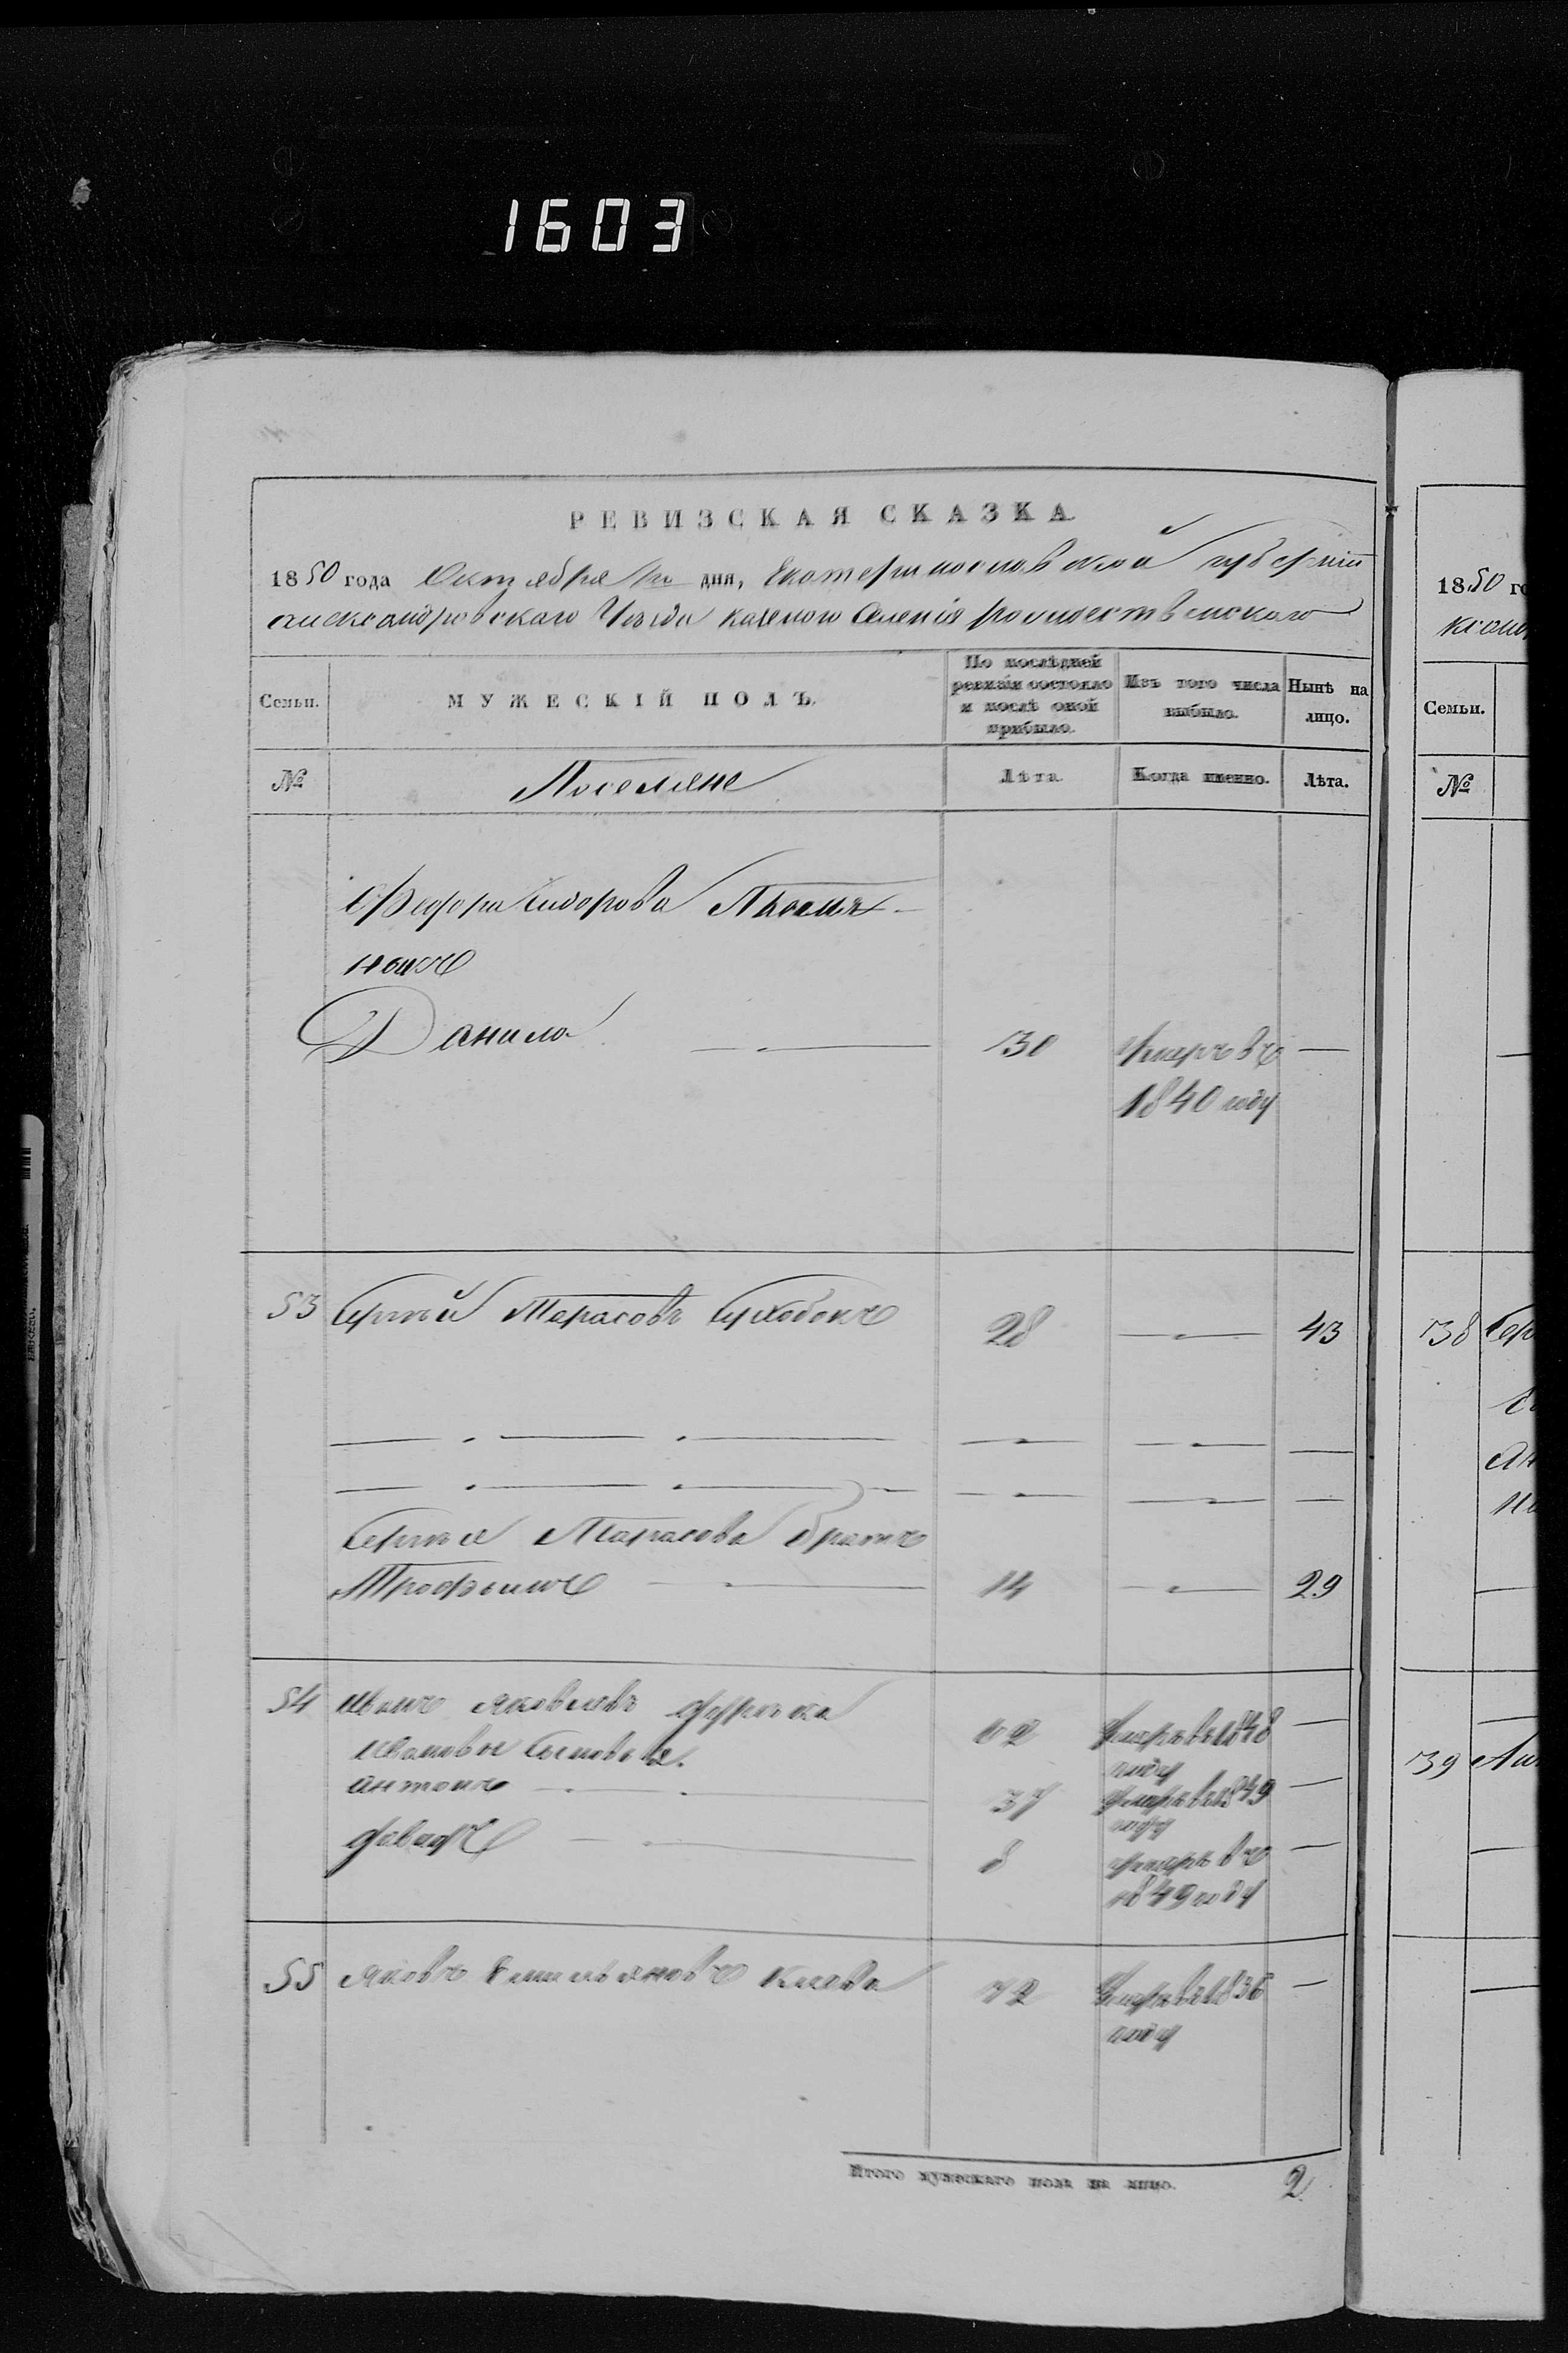 1603
РЕВИЗСКАЯ СКАЗКА.
1850 года Октября дня, Екатеринославской губерніи
Александровскаго Уѣзда казеннаго Селенія рождественскаго
Семьи. МУЖЕСКІЙ ПОЛЪ. По послѣдней ревизіи состояло и послѣ оной прибыло. Изъ того числа выбыло. Нынѣ на лицо.
№ Поселяне Лѣта. Когда именно. Лѣта.
Федора Сидорова Племян-
никъ
Данило 30 Умеръ въ —
1840 году
53 Сергѣй Тарасовъ 28 — 43
Сергѣя Тарасова братъ
Трофимъ 14 — 29
54 Иванъ Яковлевъ 62 Умеръ въ 1848 —
году
Ивановы Сыновья.
Антонъ 37 Умеръ въ 1849 —
году
8 Умеръ въ —
1849 году
55 Яковъ Емельяновъ 72 Умеръ въ 1836 —
году
Итого мужескаго пола на лицо. 2
1850 го
Семьи.
№
38 Сер
39